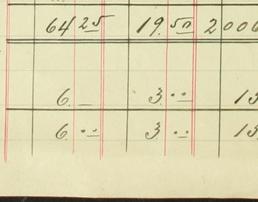 64 25 19.50 2006
6. — 3 •• 13
6. •• 3 •• 13.